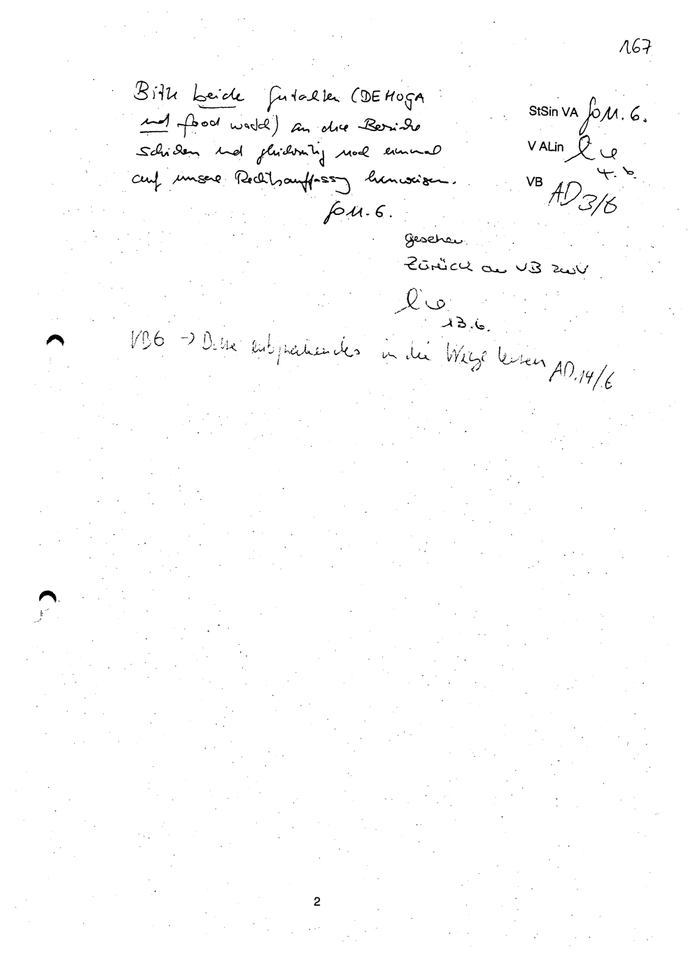 167
Bitte beide Gutachten (DEHOGA
und food watch) an die Bezirke
schicken und gleichzeitig noch einmal
auf unsere Rechtsauffassg hinweisen.
11.6.
StSin VA 11.6.
V ALin
4. 6.
VB AD 3/6
gesehen
Zurück an VB zwV
13.6.
VB6 → Bitte entsprechendes in die Wege leiten AD.14/6
2